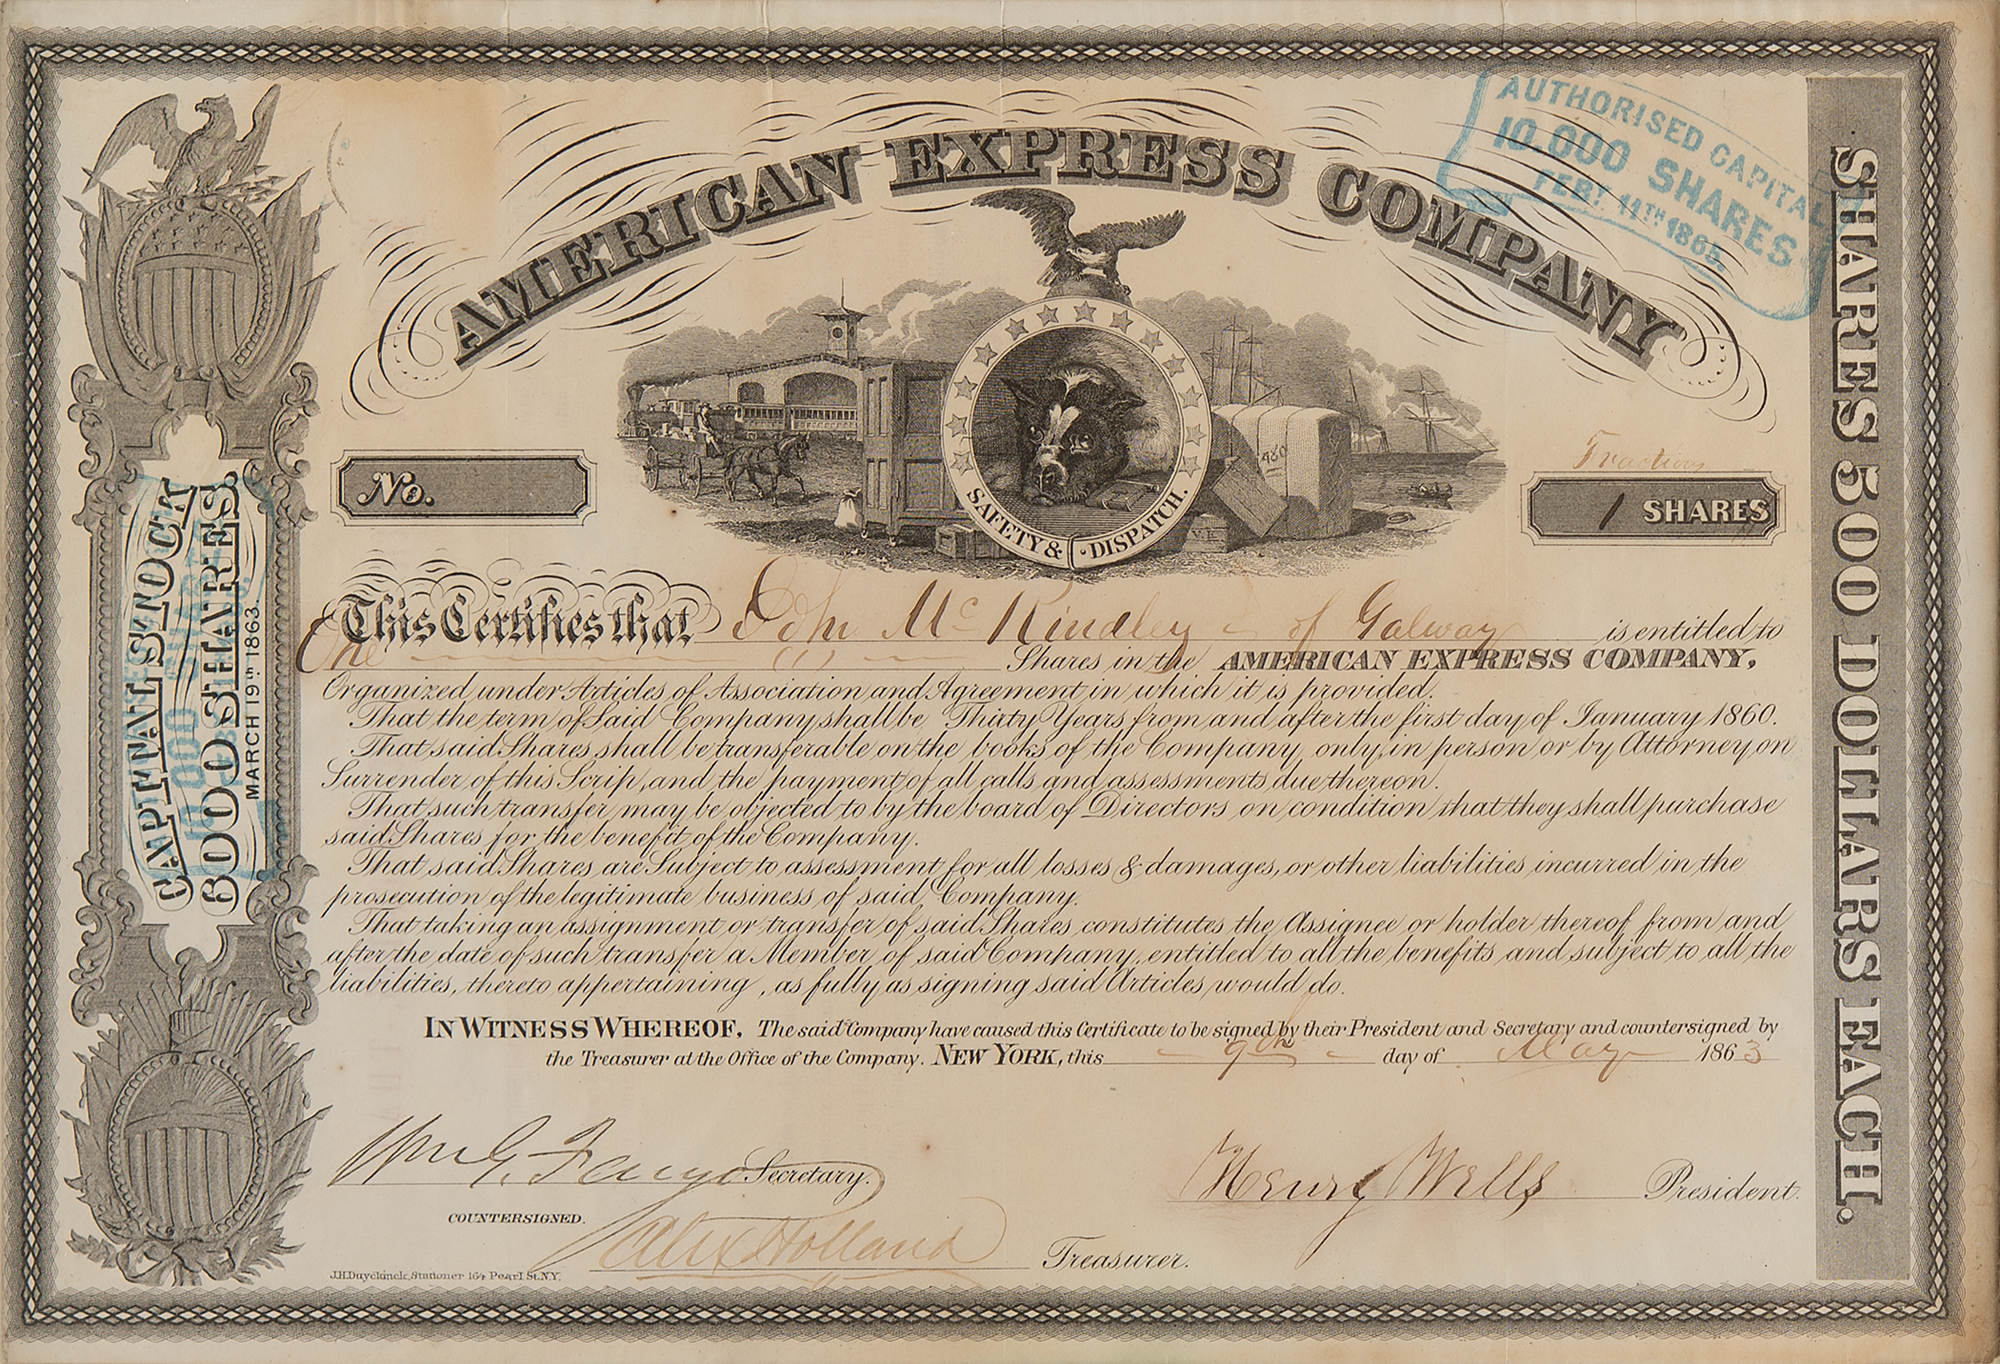 AMERICAN EXPRESS COMPANY
AUTHORISED CAPITAL
10,000 SHARES
FEBY. 11TH 1865.
SAFETY & DISPATCH.
480
V.E
No.
Fraction
1 SHARES
This Certifies that John McKindley of Galway is entitled to
One (1) Shares in the AMERICAN EXPRESS COMPANY,
Organized under Articles of Association and Agreement in which it is provided.
That the term of Said Company shall be Thirty Years from and after the first day of January 1860.
That said Shares shall be transferable on the books of the Company, only, in person or by Attorney, on
Surrender of this Scrip, and the payment of all calls and assessments due thereon.
That such transfer may be objected to by the board of Directors on condition that they shall purchase
said Shares for the benefit of the Company.
That said Shares are Subject to assessment for all losses & damages, or other liabilities incurred in the
prosecution of the legitimate business of said, Company.
That taking an assignment or transfer of said Shares constitutes the Assignee or holder thereof from and
after the date of such transfer a Member of said Company, entitled to all the benefits and subject to all the
liabilities, thereto appertaining, as fully as signing said Articles would do.
IN WITNESS WHEREOF, The said Company have caused this Certificate to be signed by their President and Secretary and countersigned by
the Treasurer at the Office of the Company. NEW YORK, this 9th day of May 1863
Wm G. Fargo Secretary.
Henry Wells President.
COUNTERSIGNED.
Alex Holland Treasurer.
J.H. Duyckinck, Stationer 164 Pearl St. N.Y.
CAPITAL STOCK
6000 SHARES.
MARCH 19TH 1863.
SHARES 500 DOLLARS EACH.